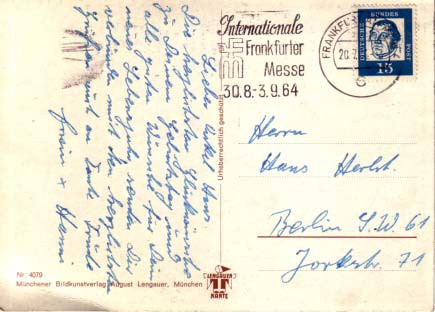 Lieber Onkel Hans
Die herzlichsten Glückwünsche
zu Deinem Geburtstag und
alle guten Wünsche für Dein
neues Lebensjahr sendet Dir
verbunden mit den herzlichsten
Grüßen auch an Tante
Hanni
Internationale
Frankfurter
Messe
30.8.-3.9.64
FRANKFU
20.
DEUTSCHE BUNDESPOST
15
Herrn
Hans Herbst
Berlin S.W. 61
Yorkstr. 71
Urheberrechtlich geschützt
Nr. 4079
Münchener Bildkunstverlag August Lengauer, München
LENGAUER
KARTE